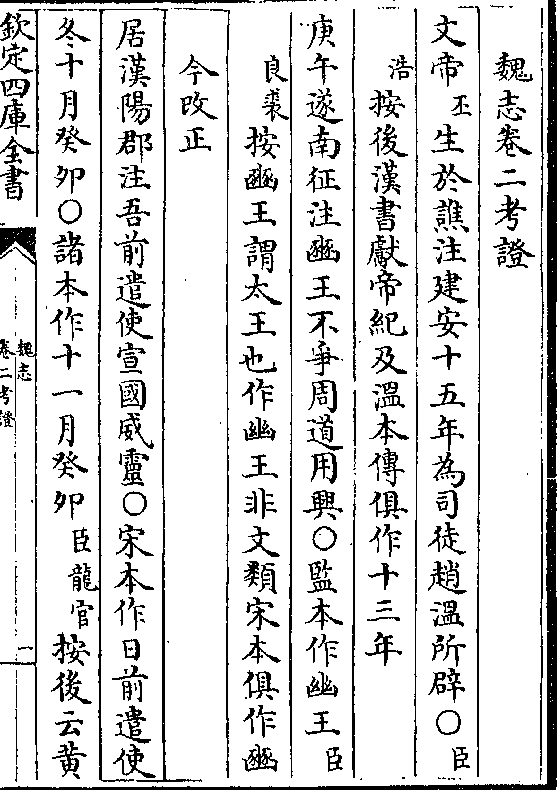 魏志卷二考證
文帝丕生於譙注建安十五年為司徒趙溫所辟○臣
浩按後漢書獻帝紀及溫本傳俱作十三年
庚午遂南征注豳王不爭周道用興○監本作幽王臣
良裘按豳王謂太王也作幽王非文類宋本俱作豳
今改正
居漢陽郡注吾前遣使宣國威靈○宋本作日前遣使
冬十月癸夘○諸本作十一月癸夘臣龍官按後云黄
欽定四庫全書
魏志
卷二考證
一